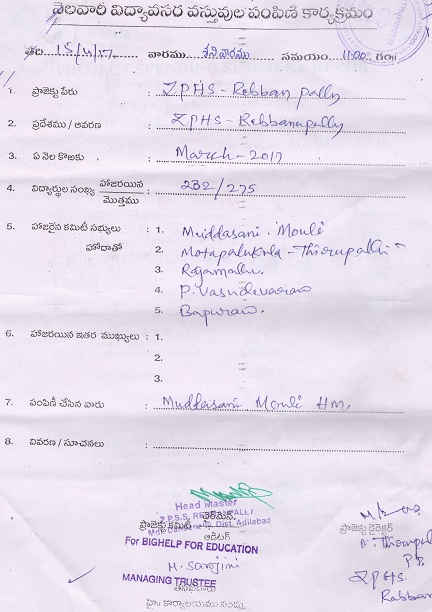 నెలవారీ విద్యావసర వస్తువుల పంపిణి కార్యక్రమం
తేది 15/4/17. వారము శనివారము సమయం 11:00 గం॥
1. ప్రాజెక్టు పేరు : ZPHS - Rebbanpally
2. ప్రదేశము / ఆవరణ : ZPHS - Rebbanapally
3. ఏ నెల కొఱకు : March - 2017
4. విద్యార్థుల సంఖ్య హాజరయిన / మొత్తము : 232/275
5. హాజరైన కమిటీ సభ్యులు హోదాతో : 1. Muddasani. Mouli
2. Motapalukula - Thirupathi
3. Rajamallu.
4. P. Vasudevarao
5. Bapurao.
6. హాజరయిన ఇతర ముఖ్యులు : 1.
2.
3.
7. పంపిణీ చేసిన వారు : Muddasani Mouli HM.
8. వివరణ / సూచనలు :
Head Master
Z.P.S.S.
ప్రాజెక్టు కమిటీ ఛైర్మెన్,
Dist. Adilabad
ఆడిటర్
ప్రాజెక్టు డైరెక్టర్
For BIGHELP FOR EDUCATION
M. Sarojini
MANAGING TRUSTEE
ZPHS.